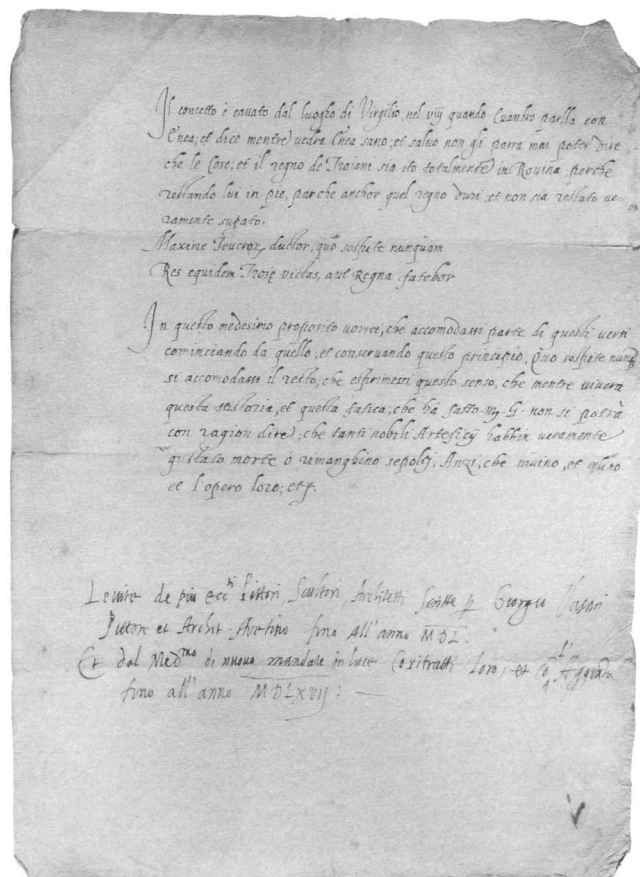 Il concetto è cavato dal luogho di Virgilio, nel viij quando Evandro parlla con
Enea; et dice mentre vedrà Enea sano, et salvo non gli parrà mai poter dire
che le Cose, et il regno de Troiani sia ito totalmente in Rovina perche
restando lui in pie, par che anchor quel regno duri, et non sia restato ve-
ramente supato.
Maxime Teucror ductor, quo sospite nunquam
Res equidem Troię victas, aut Regna fatebor
In questo medesimo proposito vorrei, che accomodassi parte di questi versi
cominciando da quello, et conservando questo principio, Quo sospite nunq
si accomodassi il resto, che esprimessi questo senso, che mentre vivera
questa historia, et questa fatica, che hà fatto m G. non si potrà
con ragion dire, che tanti nobili Artefici habbin veramente
gustato morte ò rimanghino sepolti, Anzi, che vivino, et
et l'opere loro; etc.
Le vite de piu ecc.ti Pittori, Scultori, Architetti Scritte p Giorgio Vasari
Pittore et Archit. Aretino fino All'anno MDL.
Et dal Med.mo di nuovo mandate in luce Co ritratti loro, et Co l' Aggiunta
fino all'anno MDLXVIJ: —